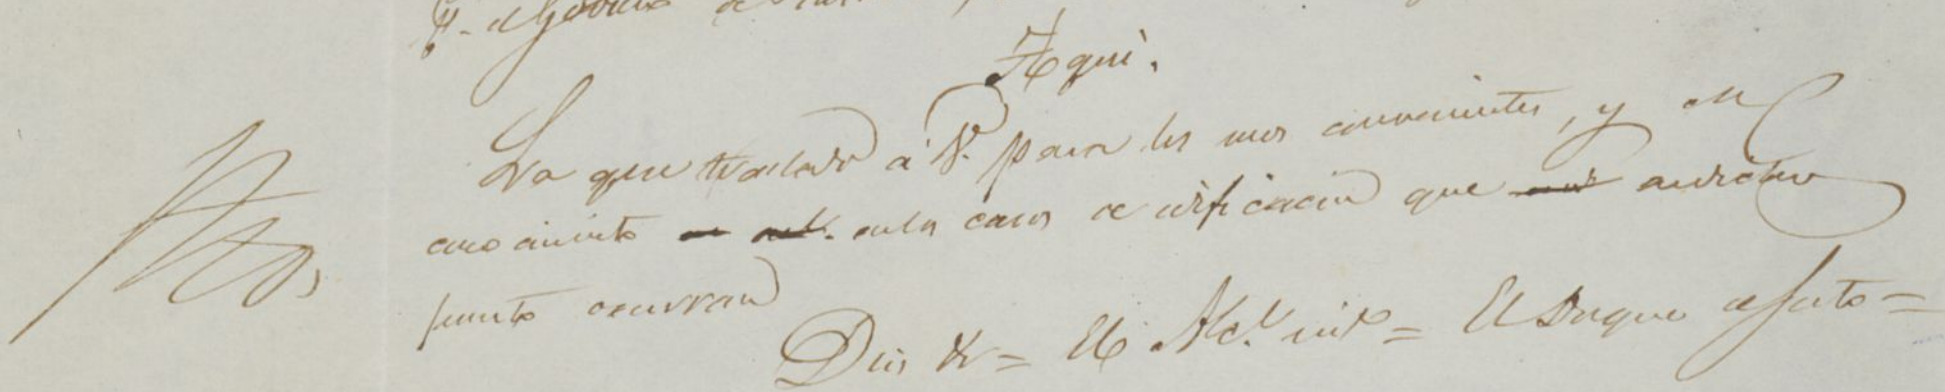 Aquí.
Lo que traslado á V. para los usos convenientes, y su
conocimiento en los casos de edificacion que
punto ocurran
Dios &= El Alc.l int.o = El Duque de Sesto =